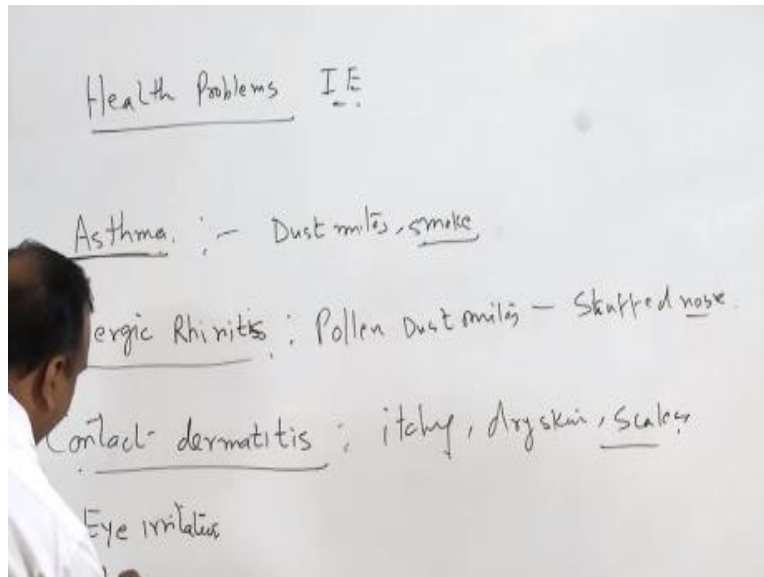 Health Problems IE
Asthma. :- Dust mites, smoke
ergic Rhinitis : Pollen Dust mites - Stuffed nose.
Contact dermatitis : itchy, dry skin, Scales
Eye irritation